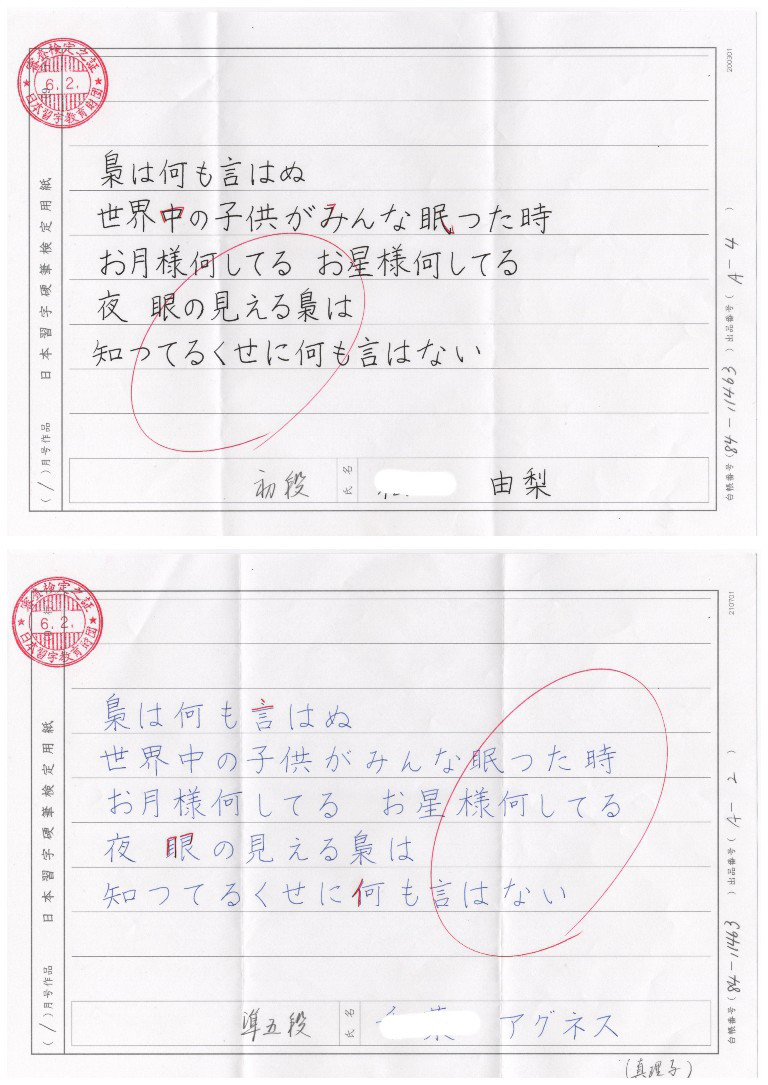 審査検定之証
6.2.
日本習字教育財団
200301
日本習字硬筆検定用紙
(1)月号作品
梟は何も言はぬ
世界中の子供がみんな眠つた時
お月様何してる お星様何してる
夜 眼の見える梟は
知つてるくせに何も言はない
初段
氏名
由梨
台帳番号(84-11463)出品番号(A-4)
審査検定之証
6.2.
日本習字教育財団
210701
日本習字硬筆検定用紙
(1)月号作品
梟は何も言はぬ
世界中の子供がみんな眠つた時
お月様何してる お星様何してる
夜 眼の見える梟は
知つてるくせに何も言はない
準五段
氏名
アグネス
(真理子)
台帳番号(84-11463)出品番号(A-2)